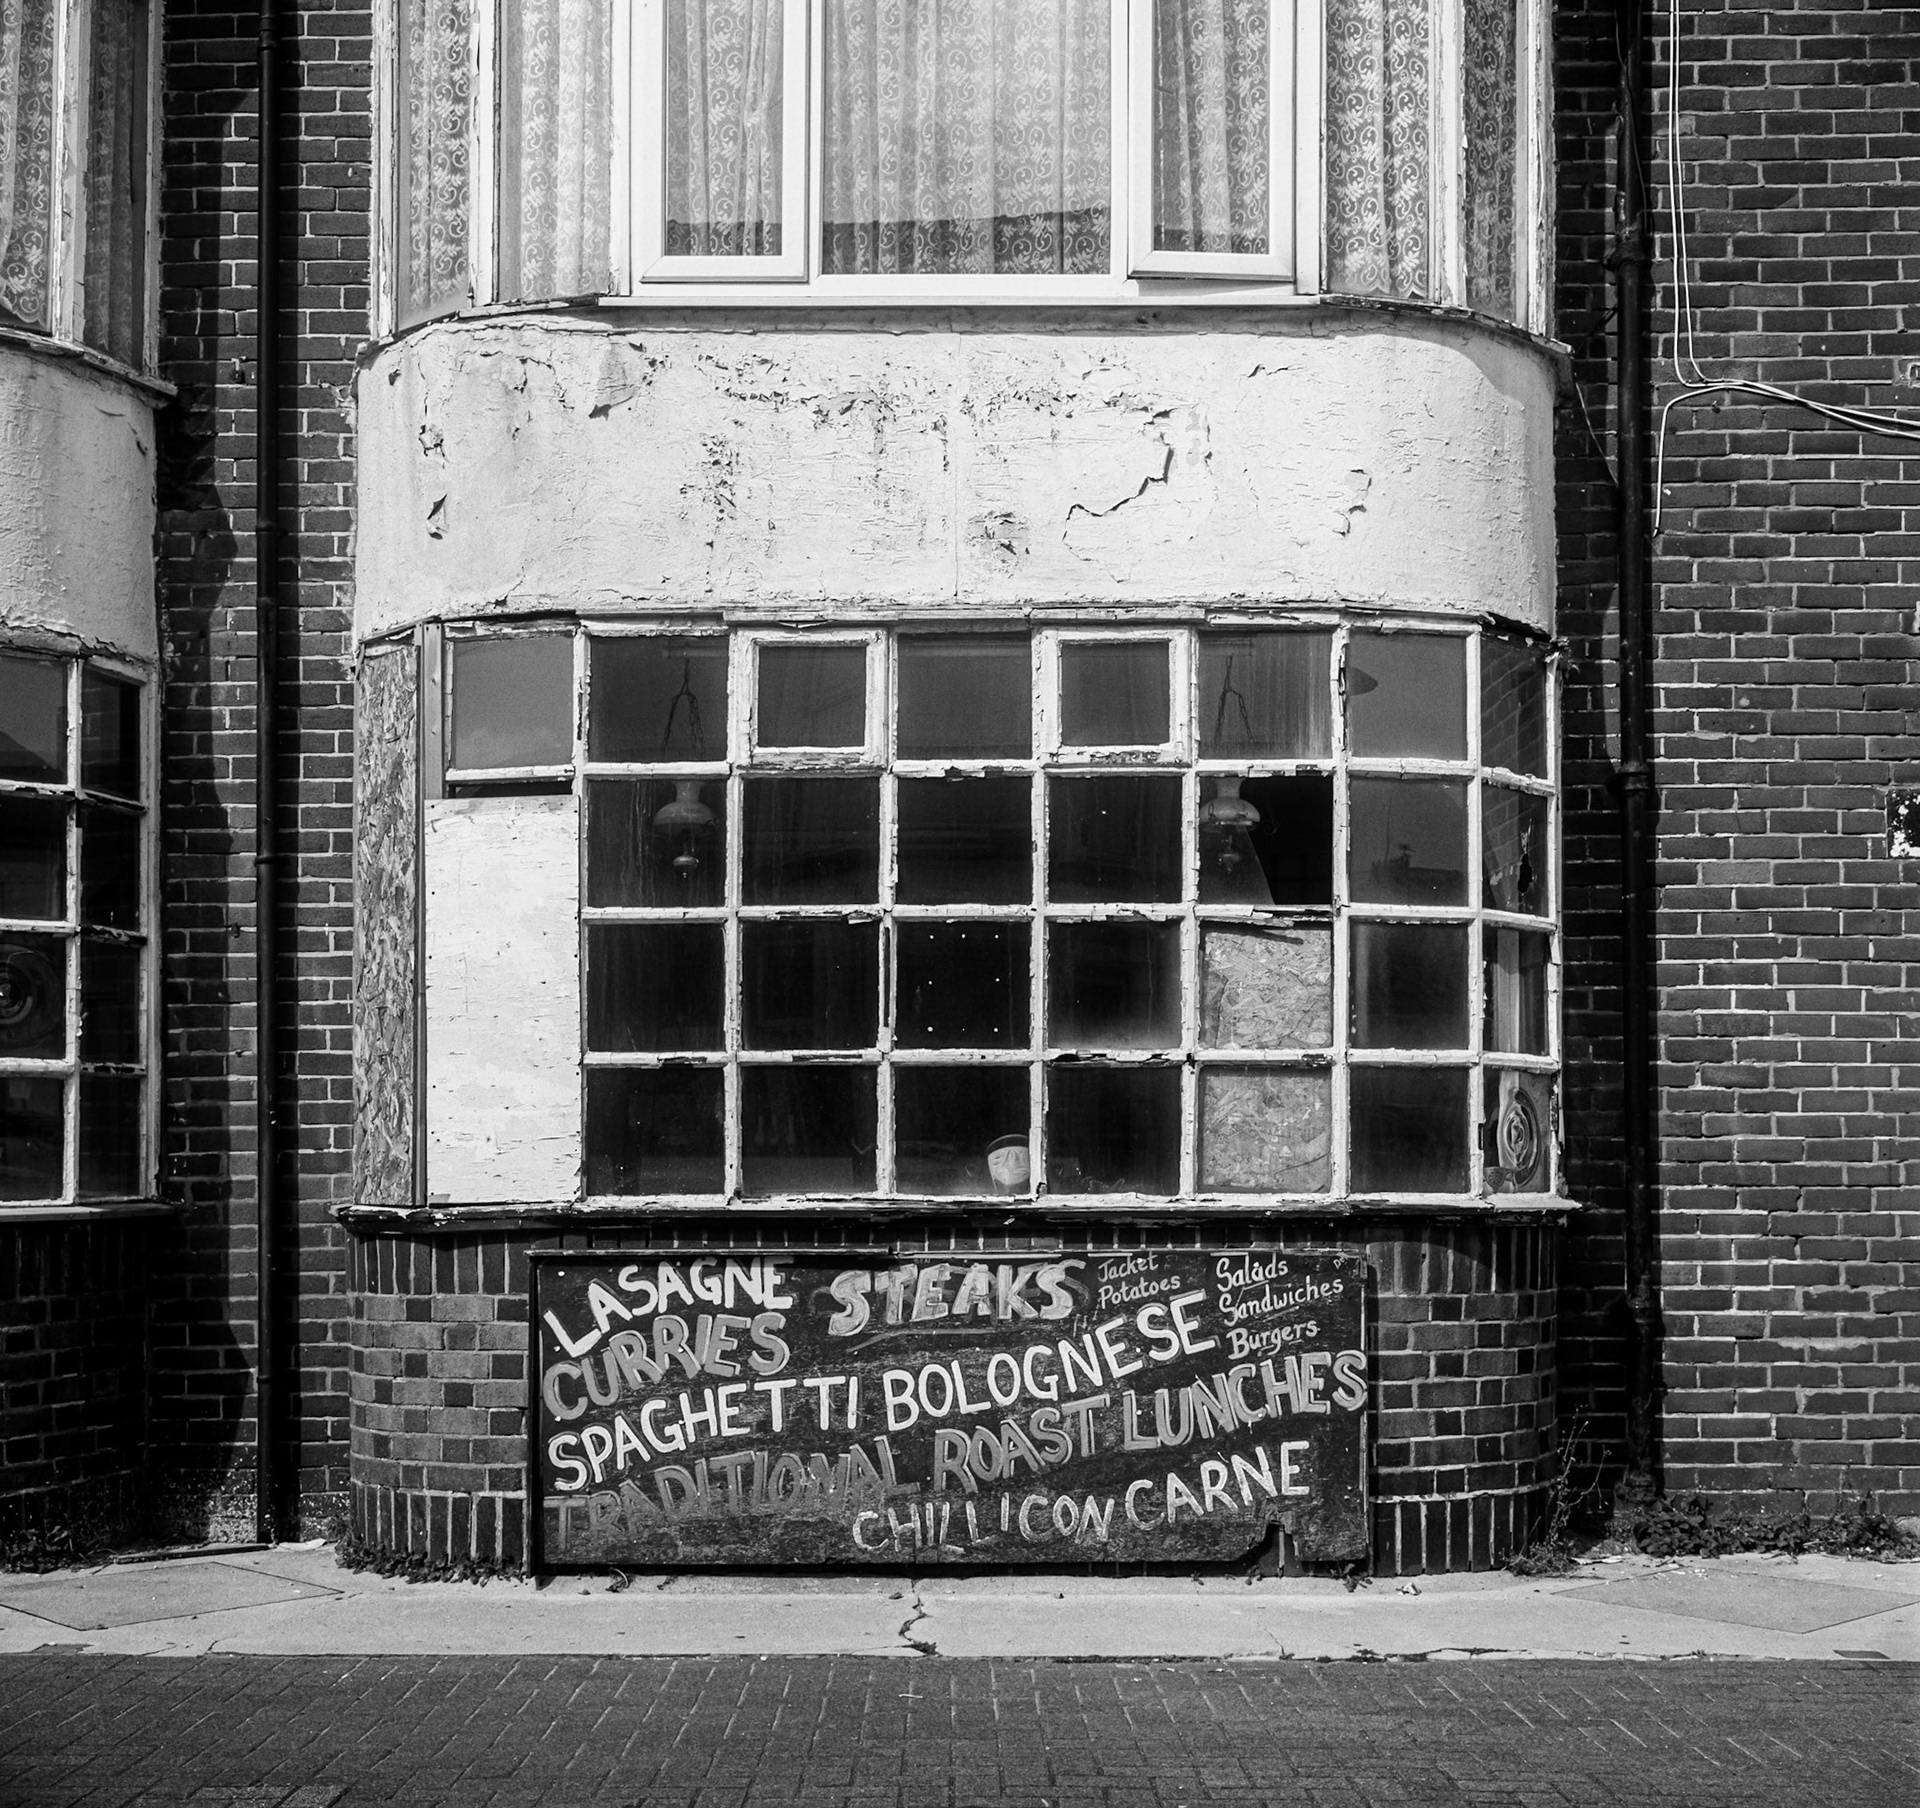 LASAGNE
STEAKS
Jacket
Potatoes
Salads
Sandwiches
Burgers
CURRIES
SPAGHETTI BOLOGNESE
TRADITIONAL ROAST LUNCHES
CHILLI CON CARNE